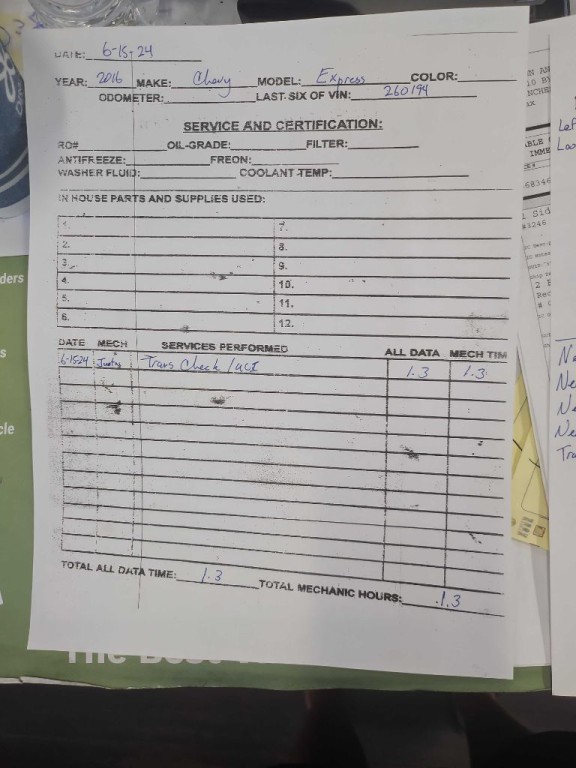 DATE: 6-15-24
YEAR: 2016 MAKE: Chevy MODEL: Express COLOR:
ODOMETER: LAST SIX OF VIN: 260194
SERVICE AND CERTIFICATION:
RO# OIL-GRADE: FILTER:
ANTIFREEZE: FREON:
WASHER FLUID: COOLANT TEMP:
IN HOUSE PARTS AND SUPPLIES USED:
1. 7.
2. 8.
3. 9.
4. 10.
5. 11.
6. 12.
DATE MECH SERVICES PERFORMED ALL DATA MECH TIM
6-1524 Trans Check / 1.3 1.3
TOTAL ALL DATA TIME: 1.3 TOTAL MECHANIC HOURS: 1.3
ders
s
cle
68346
Sid
Ne
Ne
Tra